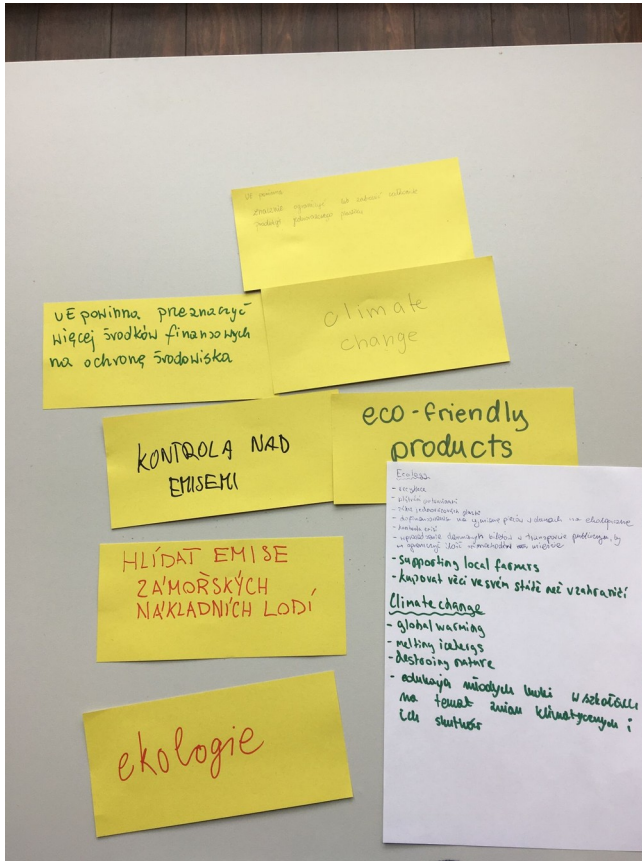 UE powinna
znacznie ograniczyć
produkcji
UE powinna przeznaczyć
więcej środków finansowych
na ochronę środowiska
climate
change
KONTROLA NAD
EMISEMI
eco-friendly
products
HLÍDAT EMISE
ZÁMOŘSKÝCH
NÁKLADNÍCH LODÍ
ekologie
Ecology
- recyklace
- plastů
- dofinansowanie na wymianę pieców w domach na ekologiczne
- kontrola emisí
- wprowadzenie darmowych biletów w transporcie publicznym, by
w ograniczyć ilość samochodów na mieście
- supporting local farmers
- kupovat věci ve svém státě než v zahraničí
Climate change
- global warming
- melting icebergs
- destroing nature
- edukacja młodych ludzi w szkołach
na temat zmian klimatycznych i
ich skutków